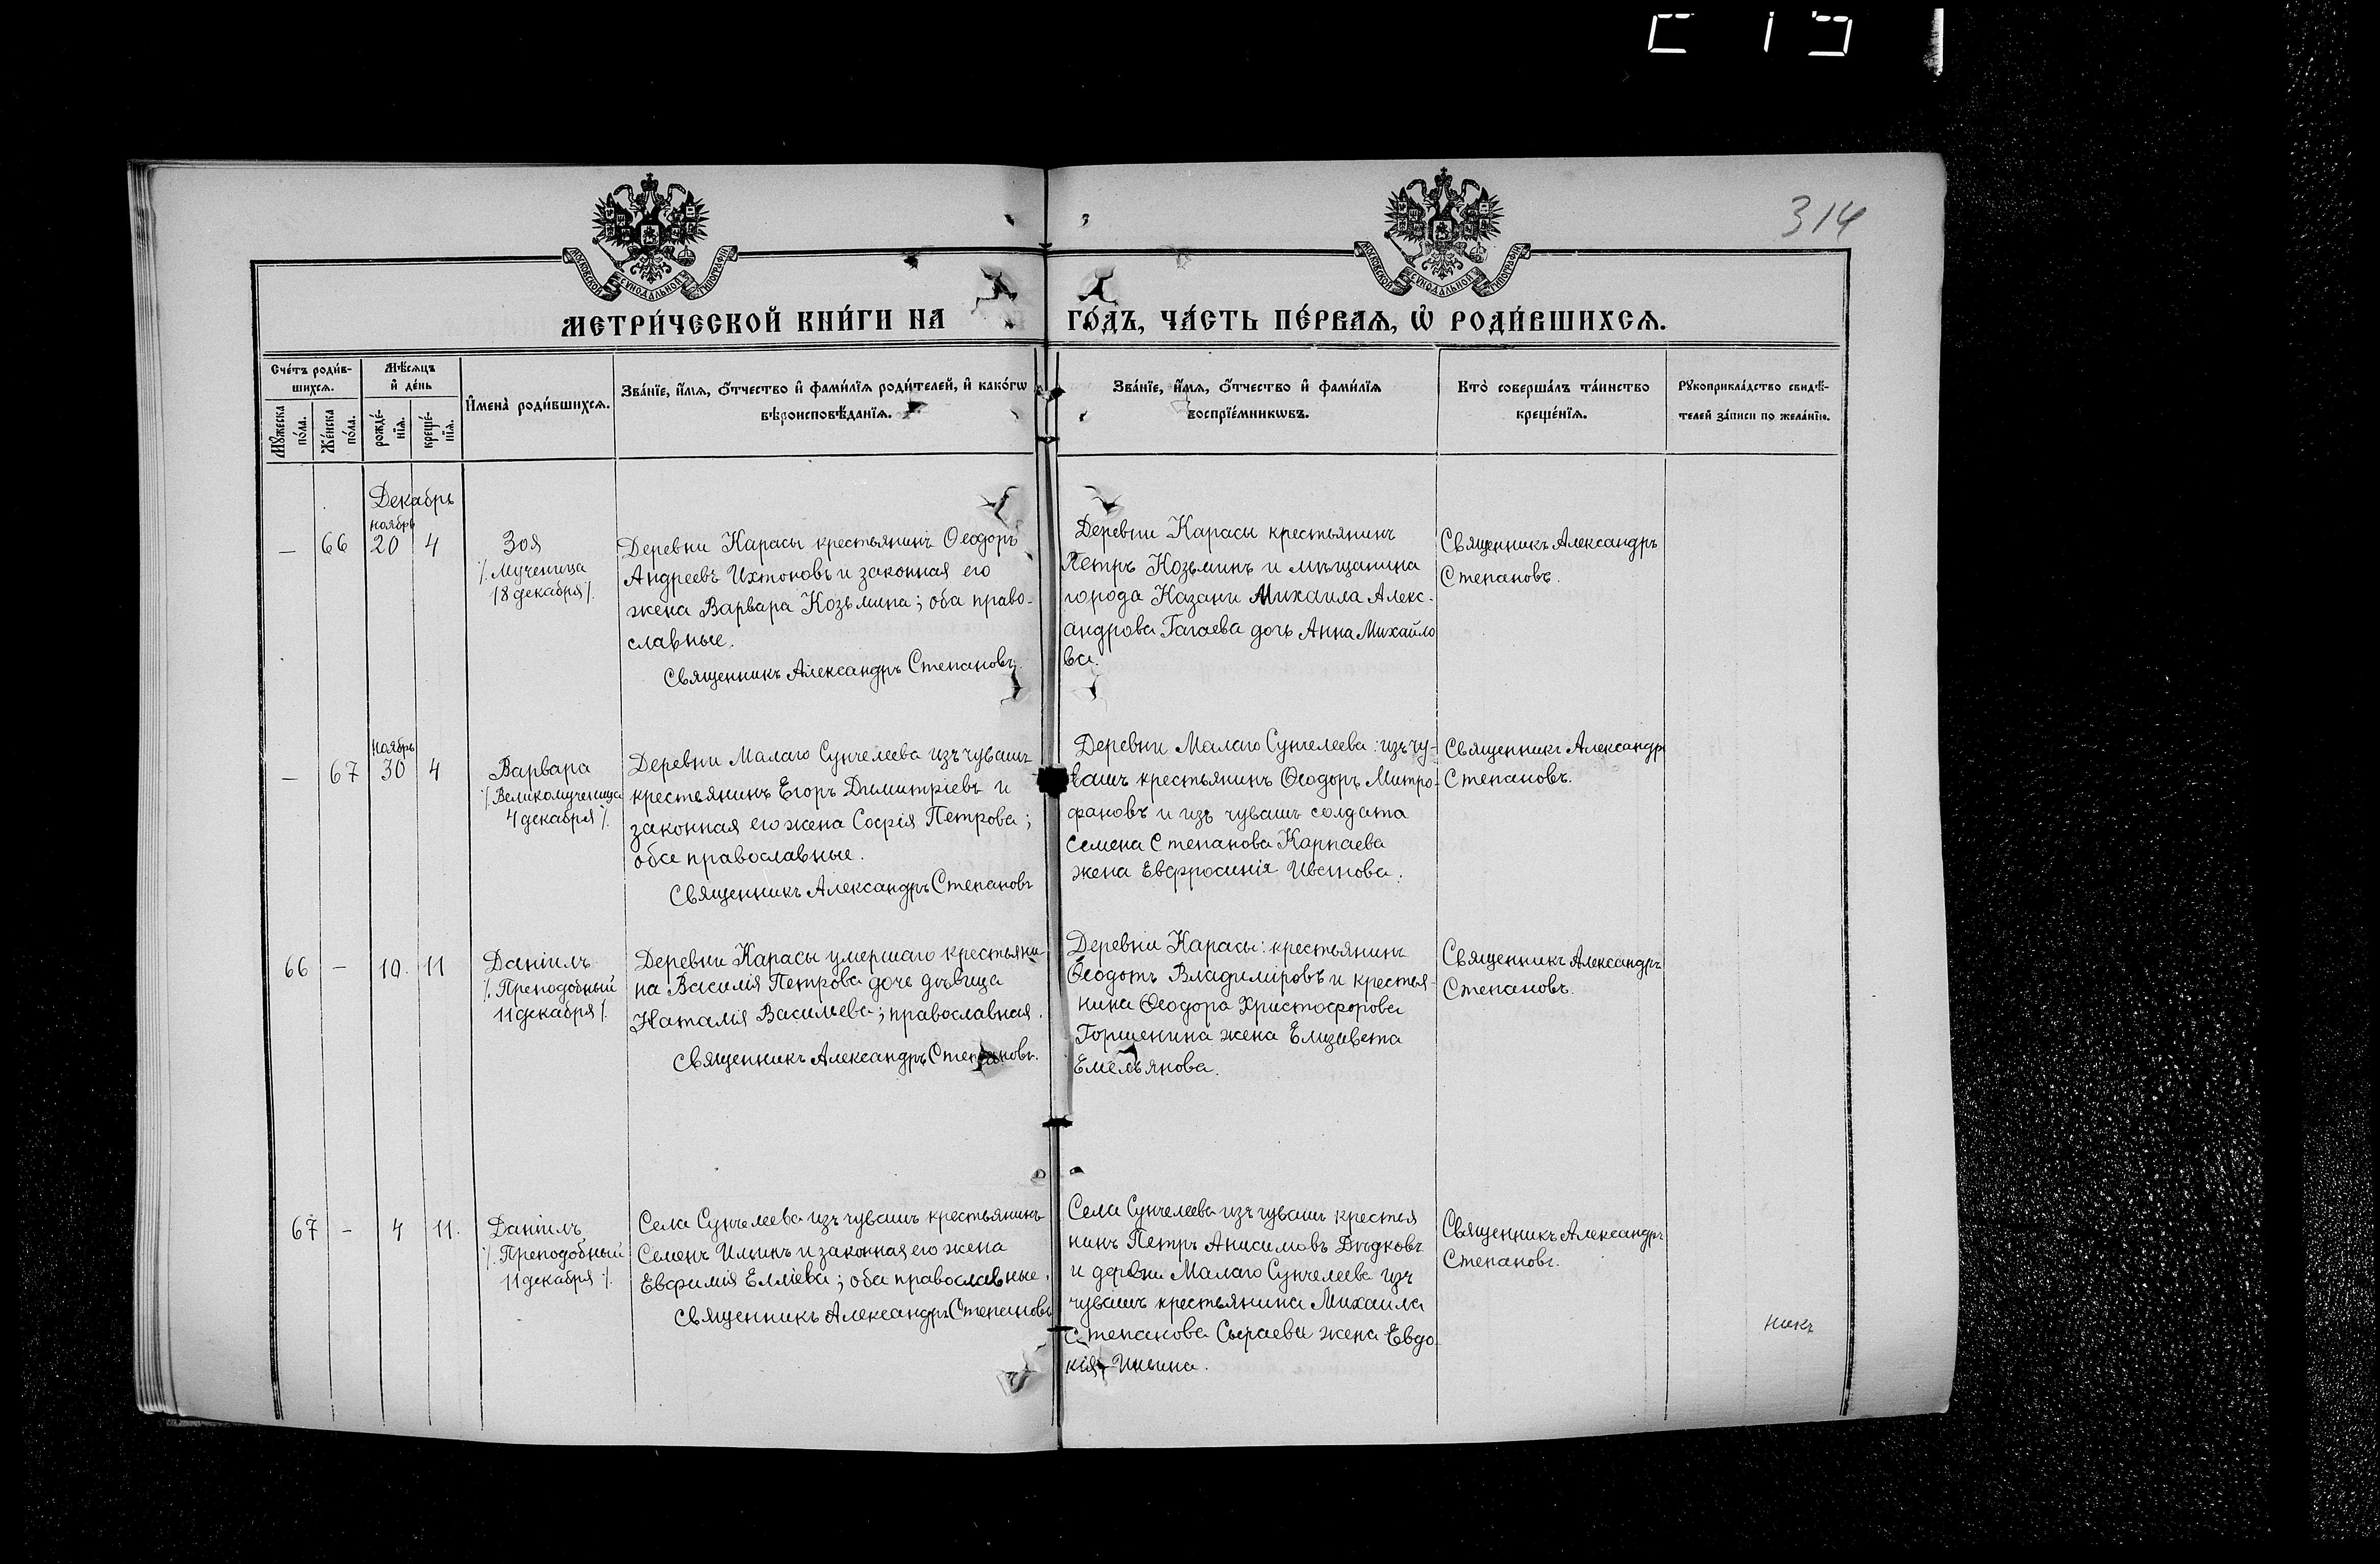 314
МОСКОВСКОЙ СѴНОДАЛЬНОЙ ТИПОГРАФІИ
МОСКОВСКОЙ СѴНОДАЛЬНОЙ ТИПОГРАФІИ
МЕТРИ́ЧЕСКОЙ КНИ́ГИ НА
ГО́ДЪ, ЧА́СТЬ ПЕ́РВАѦ, Ѿ РОДИ́ВШИХСѦ.
Сче́тъ роди́в-
шихсѧ.
Мѣ́сѧцъ
и҆ де́нь
Мꙋ́жеска
по́ла.
Же́нска
по́ла.
рожде́-
нїѧ.
креще́-
нїѧ.
И҆мена̀ роди́вшихсѧ.
Зва́нїе, и҆́мѧ, ѻ҆́тчество и҆ фами́лїѧ роди́телей, и҆ како́гѡ
вѣроисповѣ́данїѧ.
Зва́нїе, и҆́мѧ, ѻ҆́тчество и҆ фами́лїѧ
воспрїе́мникѡвъ.
Кто̀ соверша́лъ та́инство
креще́нїѧ.
Рꙋкоприкла́дство свидѣ́-
телей за́писи по жела́нїю.
Декабрь
ноябрь
— 66 20 4
Зоя
/. Мученица
18 декабря /.
Деревни Карасы крестьянинъ Ѳеодоръ
Андреевъ Ихтоновъ и законная его
жена Варвара Козьмина; оба право-
славные.
Священникъ Александръ Степановъ.
Деревни Карасы крестьянинъ
Петръ Козьминъ и мѣщанина
города Казани Михаила Алекс-
андрова Гагаева дочь Анна Михайло
ва.
Священникъ Александръ
Степановъ.
ноябрь
— 67 30 4
Варвара
/. Великомученица
4 декабря /.
Деревни Малаго Сунчелеева изъ чувашъ
крестьянинъ Егоръ Димитріевъ и
законная его жена Софія Петрова;
оба православные.
Священникъ Александръ Степановъ
Деревни Малаго Сунчелеева: изъ чу-
вашъ крестьянинъ Ѳеодоръ Митро-
фановъ и изъ чувашъ солдата
Семена Степанова Карпаева
жена Евфросинія Иванова.
Священникъ Александръ
Степановъ.
66 — 10. 11
Даніилъ
/. Преподобный
11 декабря /.
Деревни Карасы умершаго крестьяни-
на Василія Петрова дочь дѣвица
Наталія Васильева; православная.
Священникъ Александръ Степановъ.
Деревни Карасы: крестьянинъ
Ѳеодотъ Владиміровъ и крестья-
нина Ѳеодора Христофорова
Горшенина жена Елизавета
Емельянова.
Священникъ Александръ
Степановъ.
67 — 4 11.
Даніилъ
/. Преподобный
11 декабря /.
Села Сунчелеева изъ чувашъ крестьянинъ
Семенъ Ильинъ и законная его жена
Евфимія Елліева; оба православные.
Священникъ Александръ Степановъ
Села Сунчелеева изъ чувашъ крестья
нинъ Петръ Анисимовъ Дѣдковъ
и деревни Малаго Сунчелеева изъ
чувашъ крестьянина Михаила
Степанова Сыраева жена Евдо
кія Ильина.
Священникъ Александръ
Степановъ.
никъ